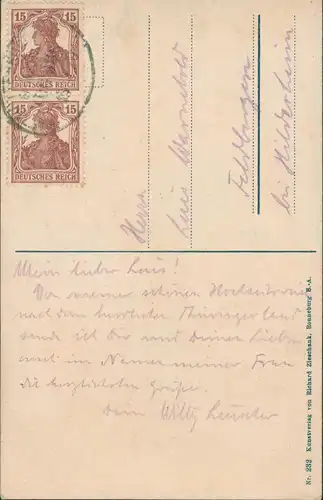 15 15
DEUTSCHES REICH
15 15
DEUTSCHES REICH
Herrn
Luis
Feldbergen
bei Hildesheim
Mein lieber Luis!
Von unserer schönen Hochzeitsreise
nach dem herrlichen Thüringer Land
sende ich Dir und Deinen Lieben
auch im Namen meiner Frau
die herzlichsten Grüße.
Dein Willy
Nr. 232 Kunstverlag von Richard Zieschank, Ronneburg S.-A.